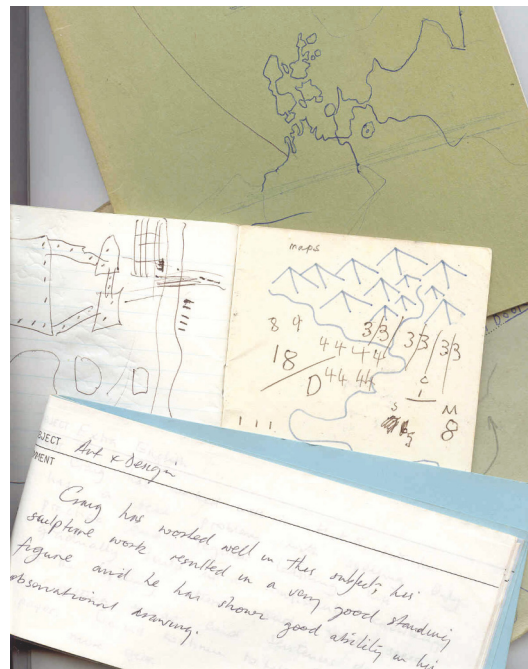 maps
8 4
3/3
3/3
3/3
18
4 4 4 4
D 44 44
C
S
M
8
BJECT Art & Design
MENT
Craig has worked well in this subject; his
sculpture work resulted in a very good standing
figure and he has shown good ability in his
observational drawing.